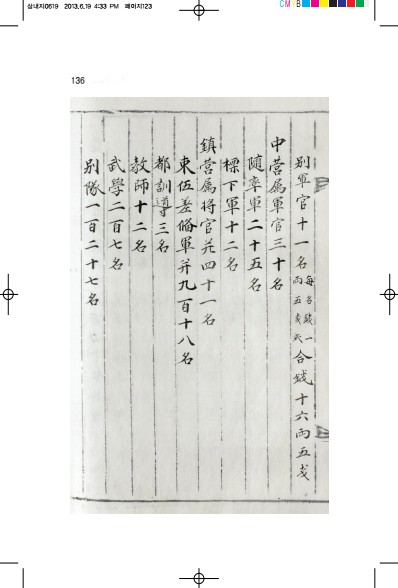 삼내지0619 2013.6.19 4:33 PM 페이지123
CM
136
別軍官十一名每名錢一兩五戔式合錢十六兩五戔
中营属軍官三十名
随率軍二十五名
標下軍十二名
鎮营属將官并四十一名
東伍差備軍并九百十八名
都訓導三名
教師十二名
武學二百七名
别隊一百二十七名